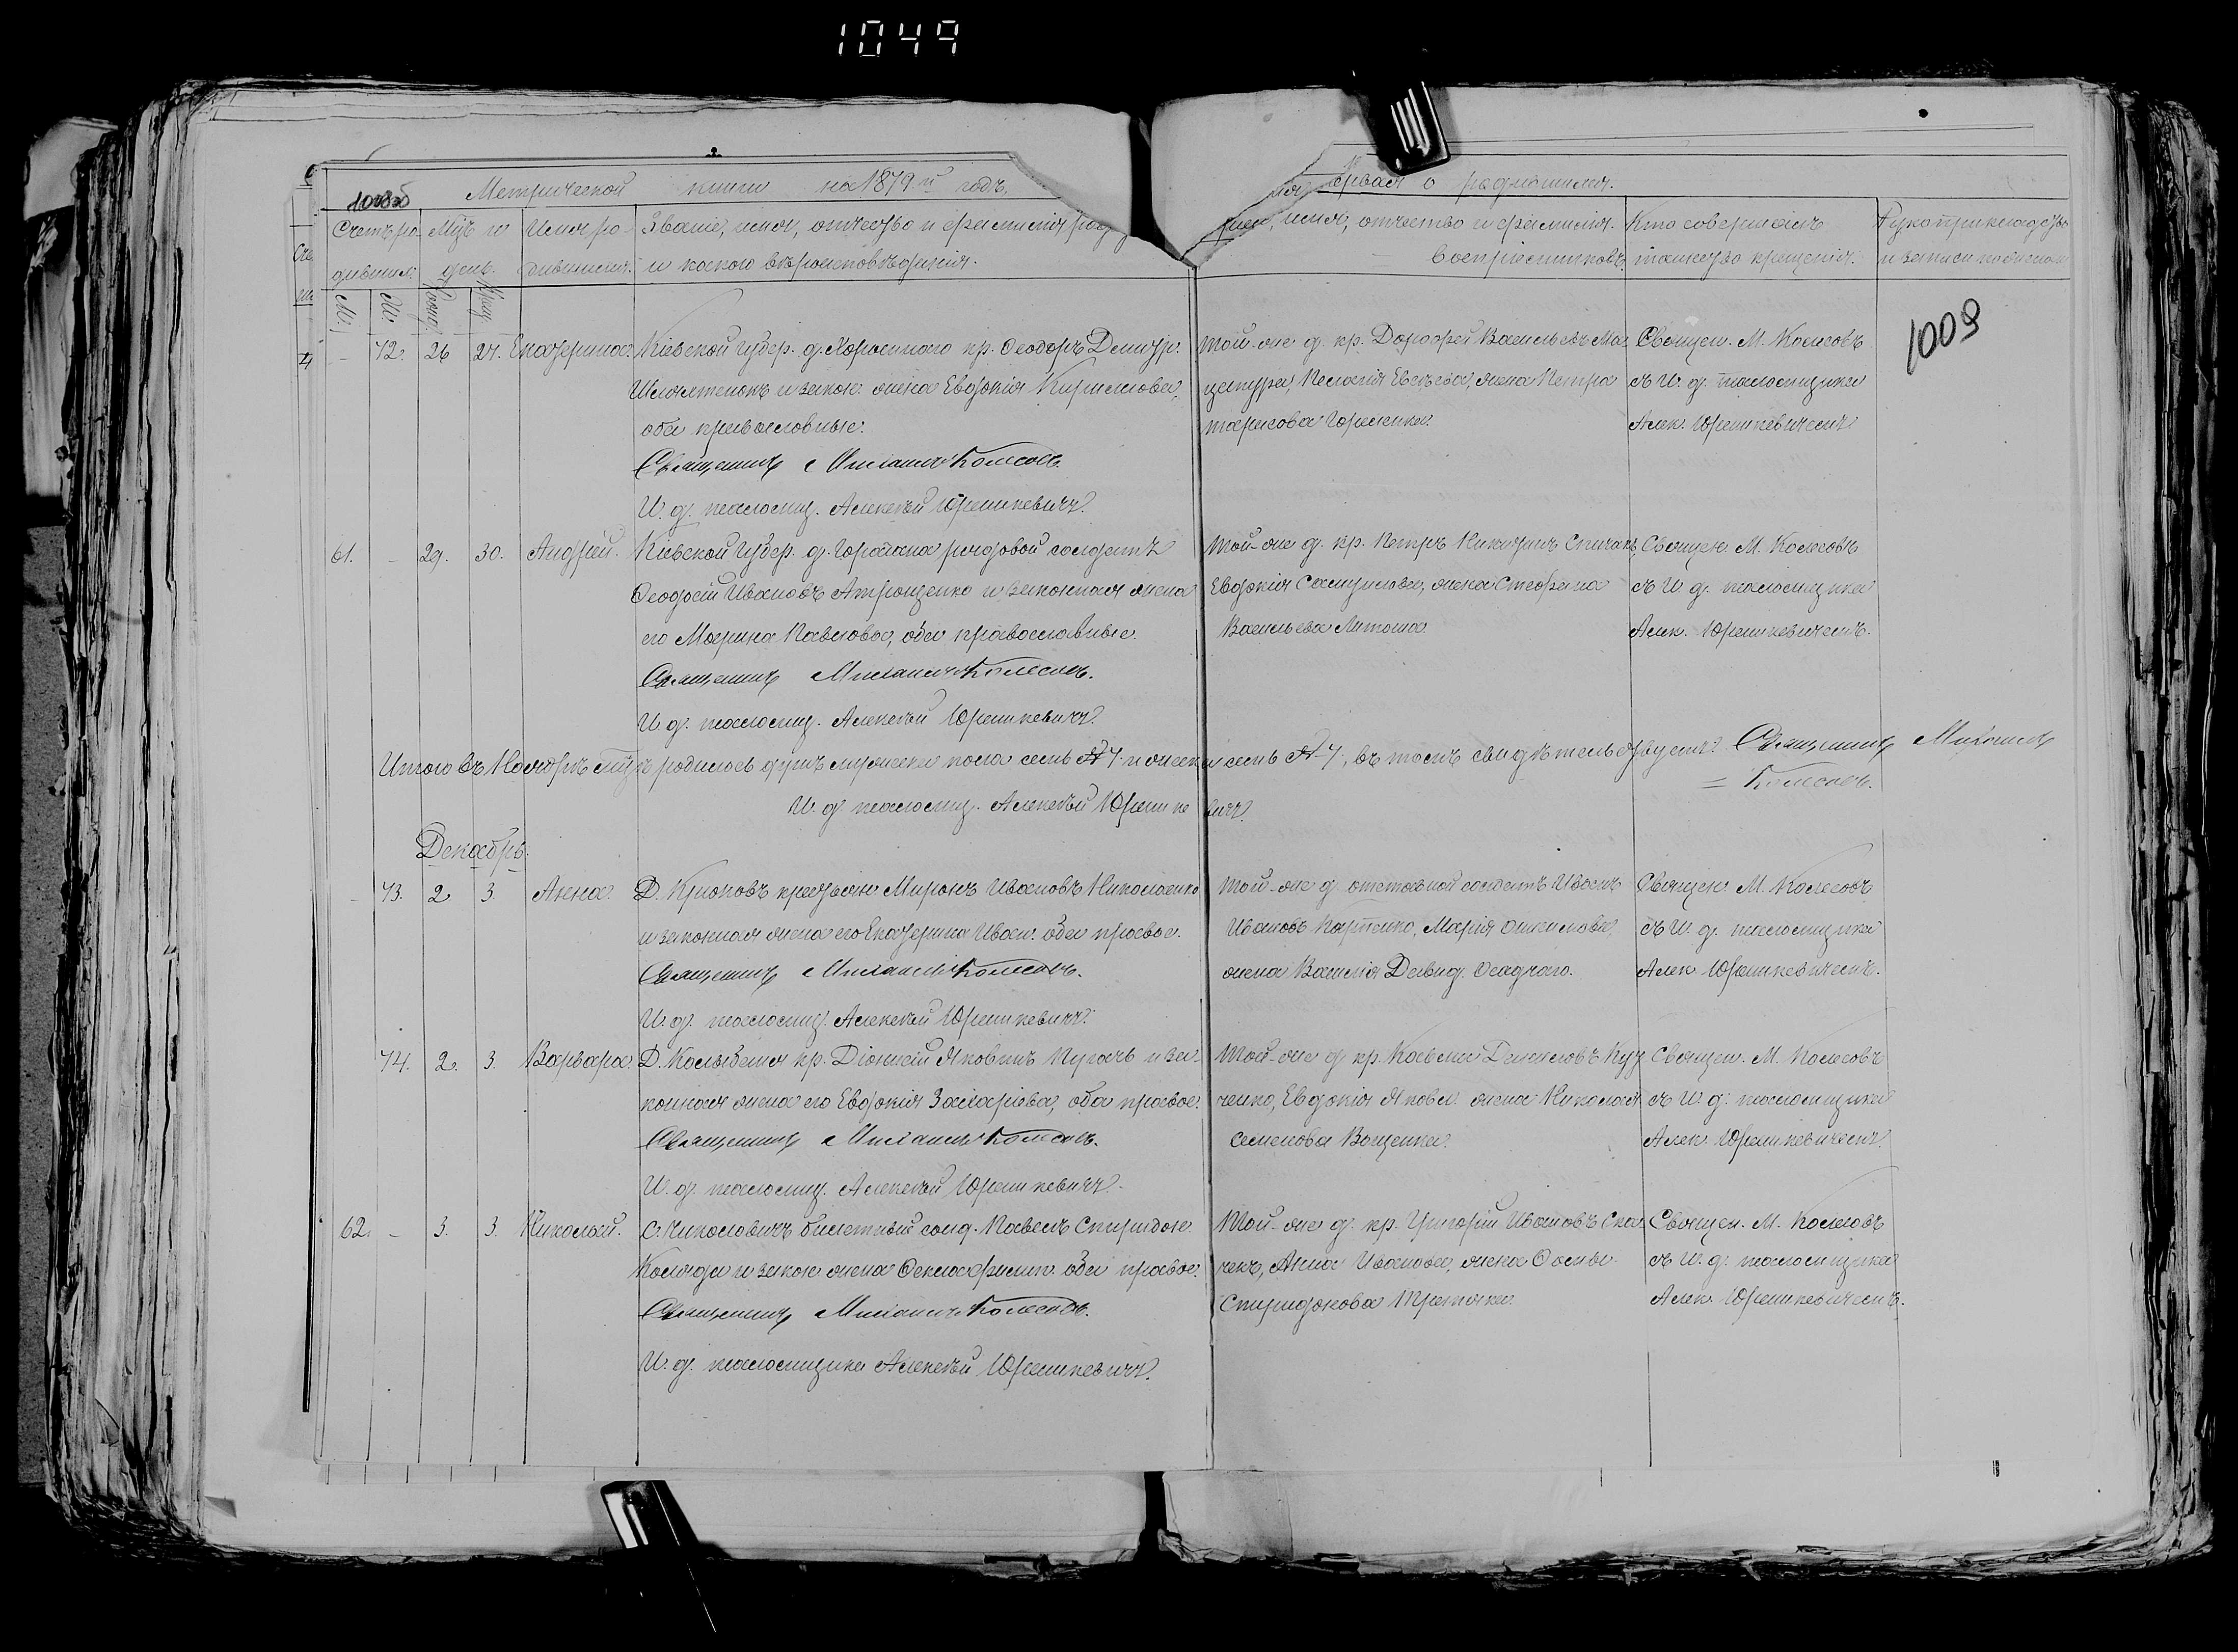 1049
Метрической книги на 1879й годъ.
первая о родившихся.
Счетъ ро-
дившихся.
Мцъ и
день.
Имя ро-
дившихся.
Званіе, имя, отчество и фамилія
и какого вѣроисповѣданія.
имя, отчество и фамилія
воспріемниковъ.
Кто совершалъ
таинство крещенія.
Рукоприкладство
М. Ж. Рожд. Крещ.
1009
– 72. 26 27. Екатерина.
Кіевской губер. кр. Ѳеодоръ Димитр.
и закон. жена Евдокія Кириллова,
оба православные.
Священникъ Михаилъ Колесовъ.
И. д. псаломщ. Алексѣй Юрашкевичъ.
Той-же д. кр. Дорофей Васильевъ Ма-
цепура, Пелагія жена Петра
Тарасова
Священ. М. Колесовъ
съ И. д. псаломщика
Алек. Юрашкевичемъ.
61. – 29. 30. Андрей.
Кіевской губер. рядовой солдатъ
Ѳеодосій Ивановъ Атрощенко и законная жена
его Марина Павлова, оба православные.
Священникъ Михаилъ Колесовъ.
И. д. псаломщ. Алексѣй Юрашкевичъ.
Той-же д. кр. Петръ Никитинъ Спичакъ,
Евдокія Самуилова, жена Стефана
Васильева
Священ. М. Колесовъ
съ И. д. псаломщика
Алек. Юрашкевичемъ.
Итого въ Ноябрѣ мцѣ родилось душъ мужеска пола семь 7. и женска семь 7, въ томъ свидѣтельствуемъ: Священникъ Михаилъ
= Колесовъ.
И. д. псаломщ. Алексѣй Юрашкевичъ.
Декабрь.
– 73. 2 3. Анна.
Д. Крюковъ крестьян. Миронъ Ивановъ Николаенко
и законная жена его Екатерина Иван. оба правос.
Священникъ Михаилъ Колесовъ.
И. д. псаломщ. Алексѣй Юрашкевичъ.
Той-же д. отставной солдатъ Иванъ
Ивановъ Марія
жена Василія Давид. Осадчаго.
Священ. М. Колесовъ
съ И. д. псаломщика
Алек. Юрашкевичемъ.
74. 2. 3. Варвара.
Д. кр. Діонисій Яковлевъ Пугачъ и за-
конная жена его Евдокія Захаріева, оба правос.
Священникъ Михаилъ Колесовъ.
И. д. псаломщ. Алексѣй Юрашкевичъ.
Той-же д. кр. Косьма
ченко, Евдокія Яковл. жена Николая
Семенова Ващенка.
Священ. М. Колесовъ
съ И. д. псаломщика
Алек. Юрашкевичемъ.
62. – 3. 3. Николай.
билетный солд. Павелъ Спиридон.
Коляда и закон. жена Ѳекла Филип. оба правос.
Священникъ Михаилъ Колесовъ.
И. д. псаломщика Алексѣй Юрашкевичъ.
Той-же д. кр. Григорій Ивановъ
Анна Иванова, жена Ѳомы
Спиридонова
Священ. М. Колесовъ
съ И. д. псаломщика
Алек. Юрашкевичемъ.